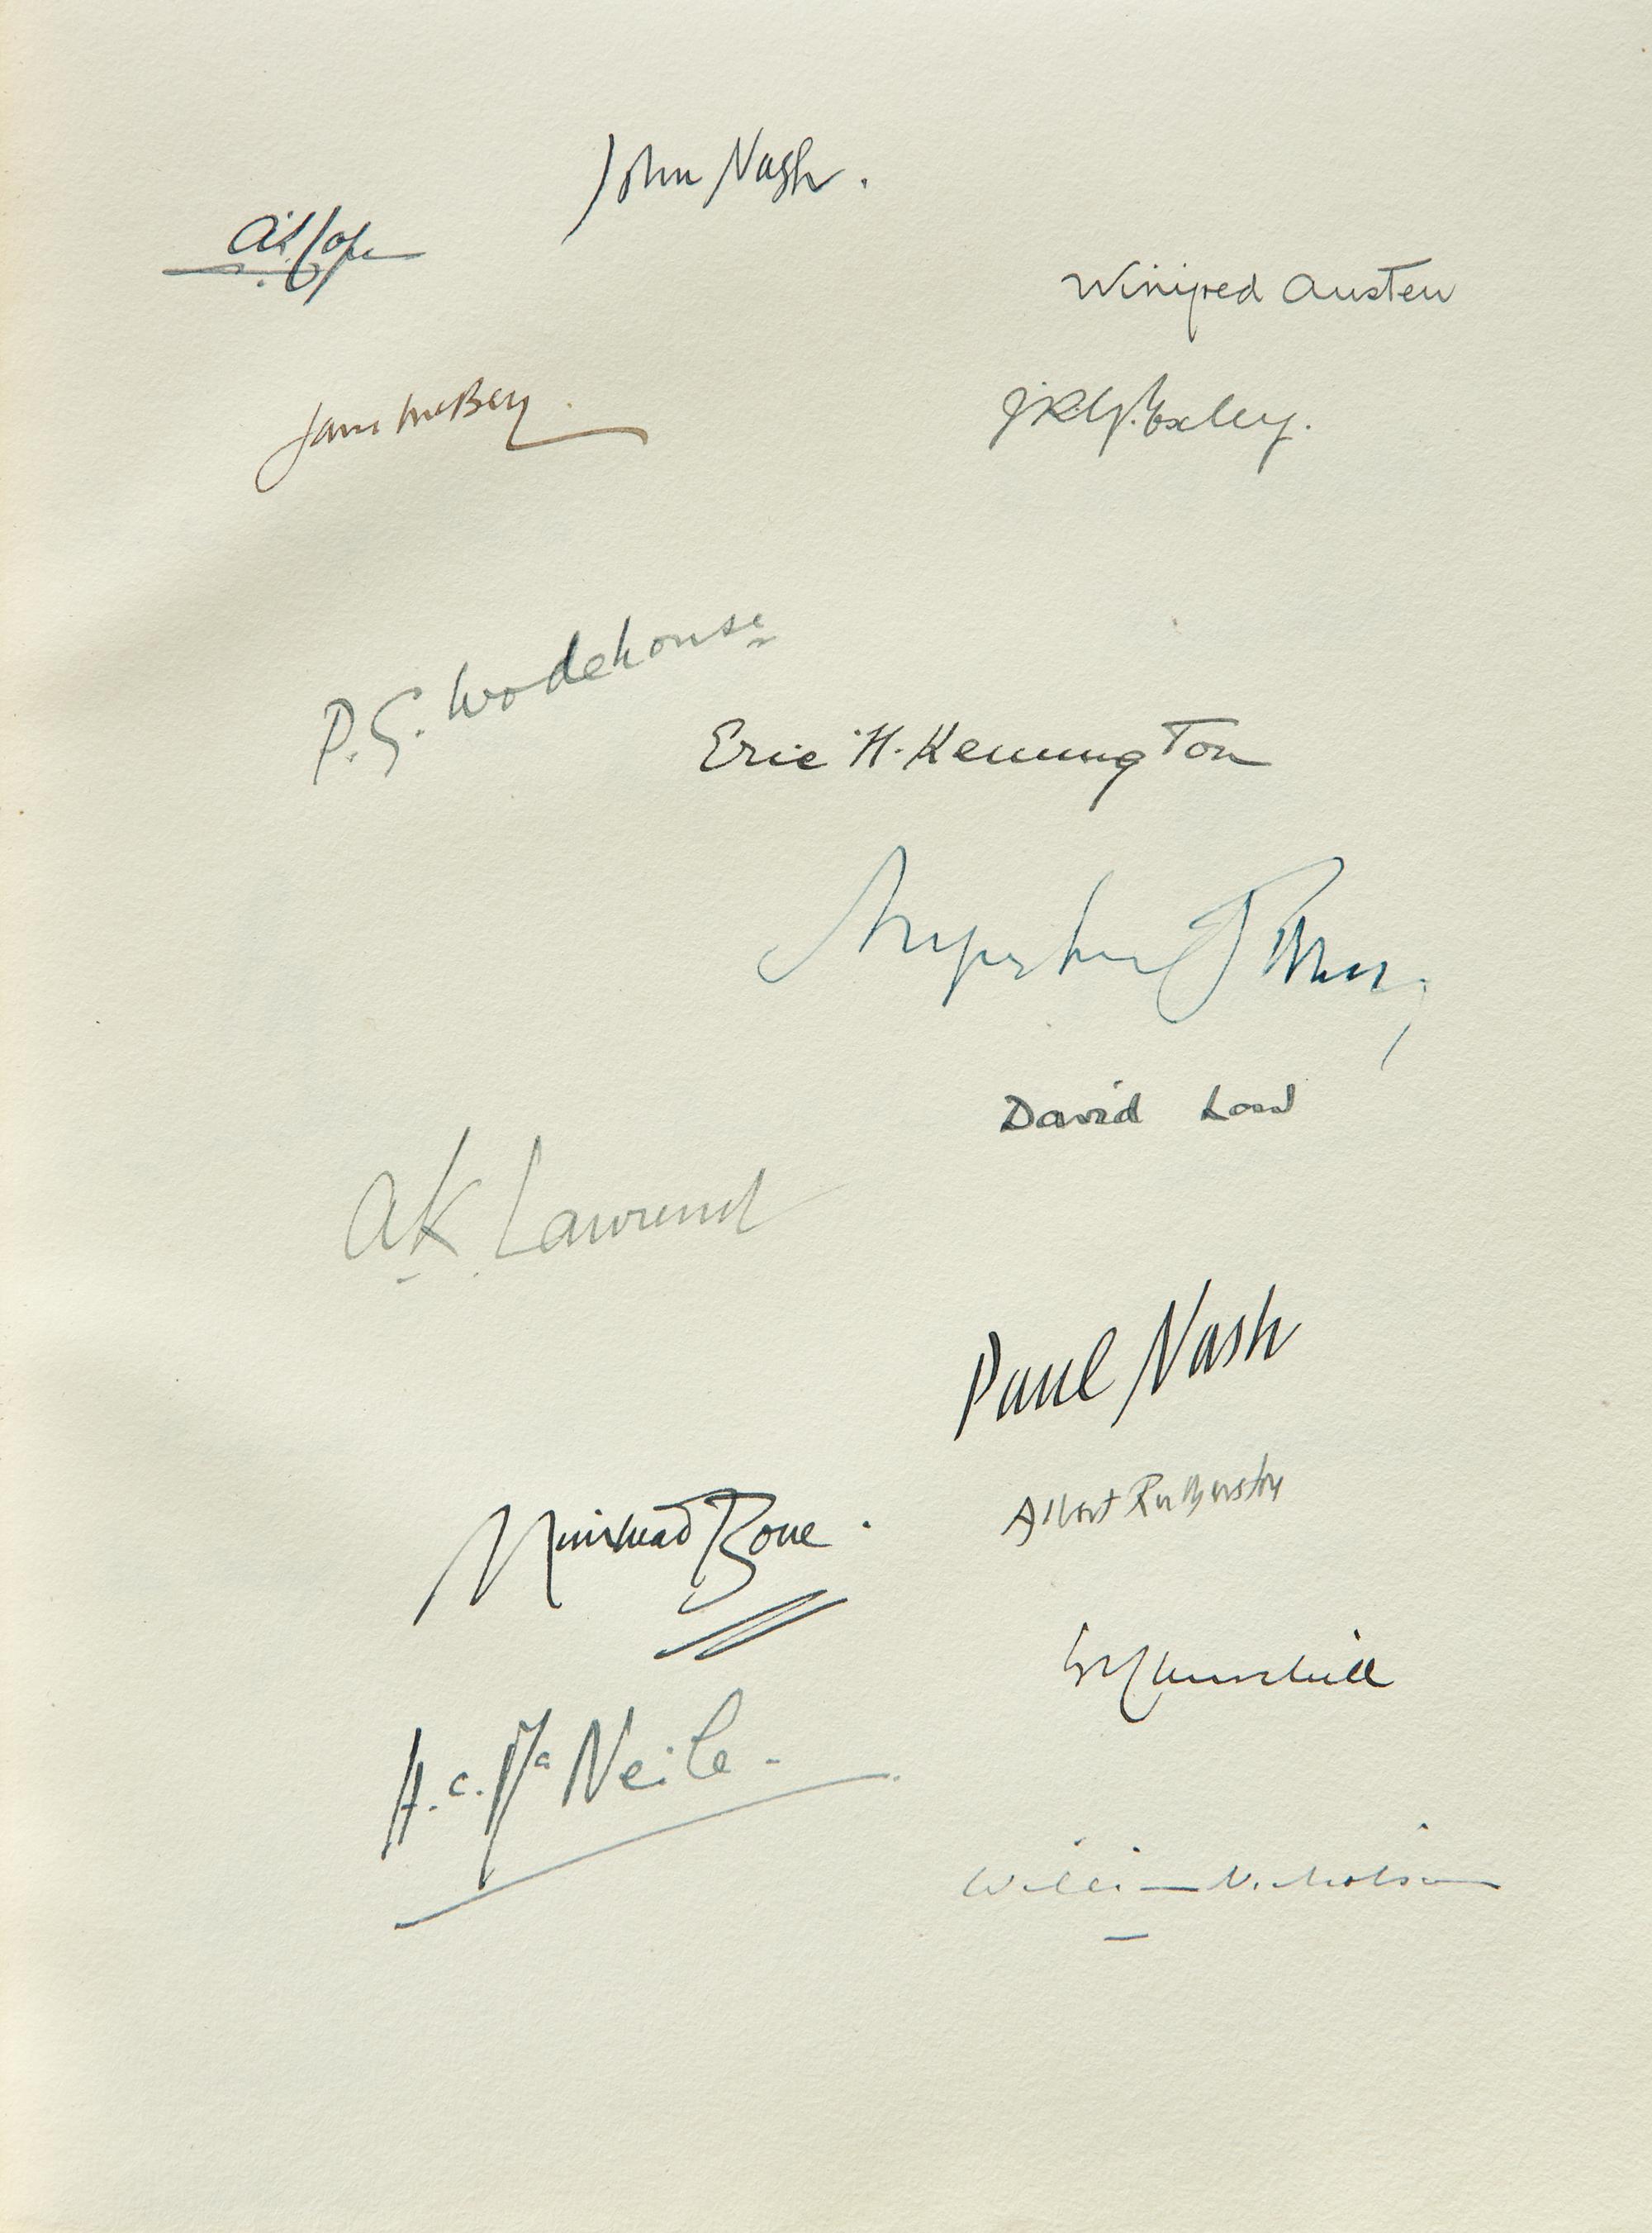 John Nash.
A.S. Cope
Winifred Austen
James McBey
J.R.G. Exley.
P.G. Wodehouse
Eric H. Kennington
Augustus John
David Low
A.K. Lawrence
Paul Nash
Albert Rutherston
Muirhead Bone.
W Churchill
H.C. McNeile.
William Nicholson